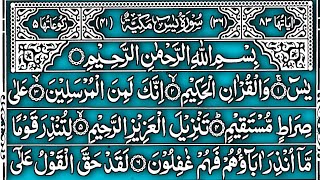 اٰیَاتُهَا ۸۳ (۳۶) سُوْرَةُ یٰسٓ مَكِّیَّةٌ (۴۱) رُكُوْعَاتُهَا ۵
بِسْمِ اللّٰهِ الرَّحْمٰنِ الرَّحِیْمِ
یٰسٓ وَالْقُرْاٰنِ الْحَكِیْمِ اِنَّكَ لَمِنَ الْمُرْسَلِیْنَ عَلٰی
صِرَاطٍ مُّسْتَقِیْمٍ تَنْزِیْلَ الْعَزِیْزِ الرَّحِیْمِ لِتُنْذِرَ قَوْمًا
مَّاۤ اُنْذِرَ اٰبَآؤُهُمْ فَهُمْ غٰفِلُوْنَ لَقَدْ حَقَّ الْقَوْلُ عَلٰۤی